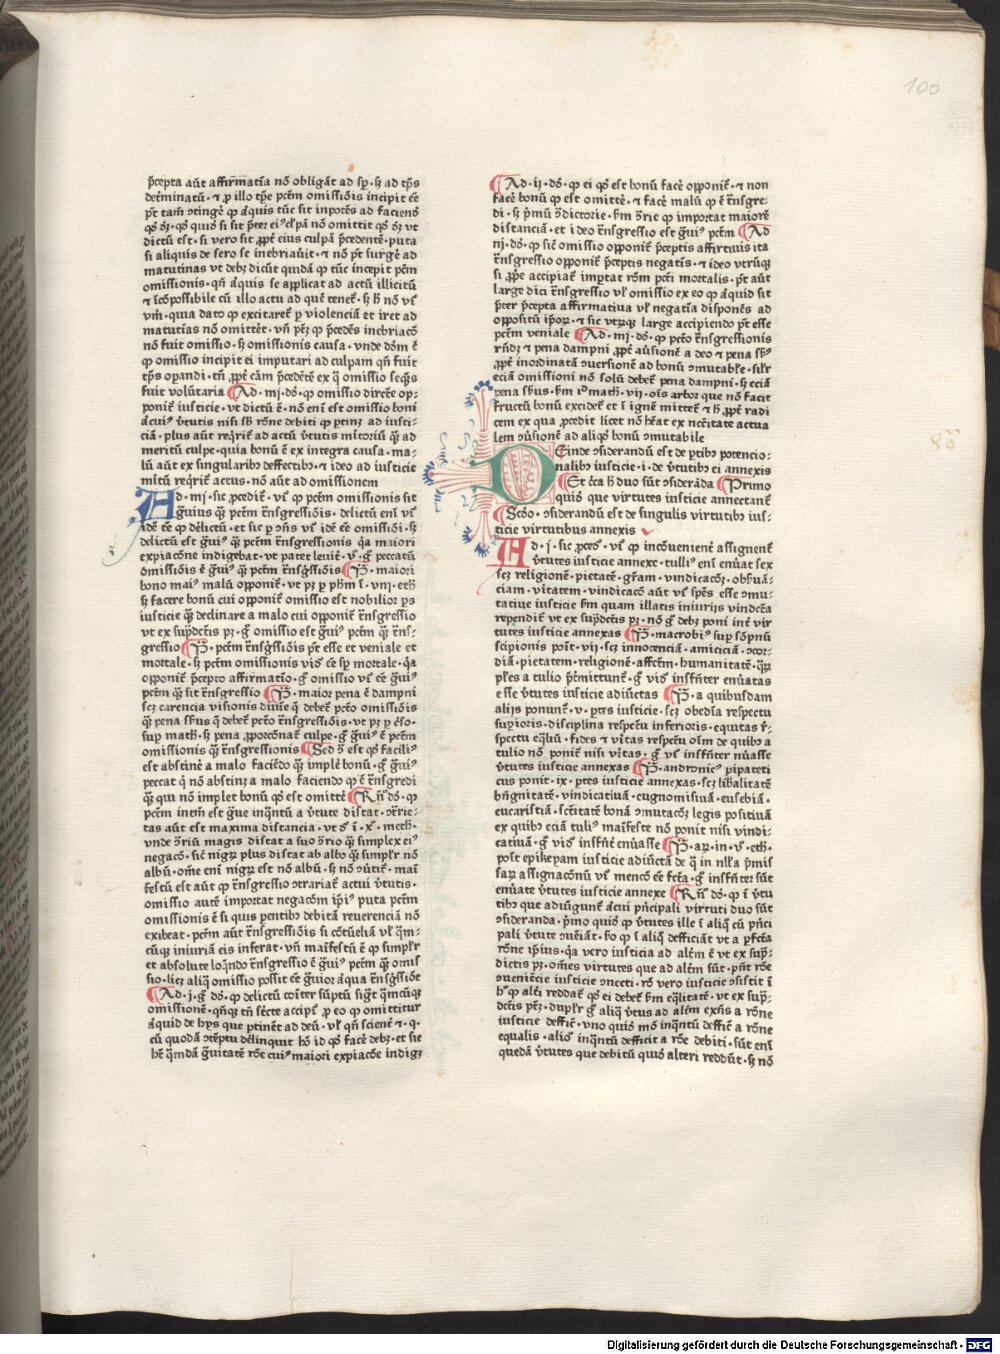 100
p̄cepta aūt affirmatīa nō obligāt ad sꝑ· sꝫ ad tp̄s
det̄minatū· ⁊ ꝓ illo tꝑe pctm̄ omissiōis incipit eē
dictū est· si vero sit ꝓpt̄ eius culpā p̄cedentē· puta
si aliquis de sero se inebriauit· ⁊ nō pt̄ surgē ad
matutinas vt debꝫ dicūt quidā ꝙ tūc incepit pctm̄
omissionis· qn̄ aliquis se applicat ad actū illicitū
⁊ īcōpossibile cū illo actu ad quē tenet̄· sꝫ h̄ nō vꝫ
vm̄· quia dato ꝙ excitaret̄ ꝑ violenciā et iret ad
matutīas nō omittēt· vn̄ pꝫ ꝙ p̄cedēs inebriacō
nō fuit omissio· sꝫ omissionis causa· vnde dōm̄ ē
ꝙ omissio incipit ei imputari ad culpam qn̄ fuit
tp̄s oꝑandi· tn̄ ꝓpt̄ cām p̄cedētē ex q̄ omissio seqͥs
fuit volūtaria Ad· iij· dō· ꝙ omissio dirc̄te op⸗
ponit̄ iusticie· vt dictū ē· nō enī est omissio boni
alicuiꝰ v̄tutis nisi sb̄ rōne debiti ꝙ ꝑtinꝫ ad iusti⸗
ciā· plus aūt reqͥrit̄ ad actū v̄tutis mitoriū qͣꝫ ad
meritū culpe· quia bonū ē ex integra causa· ma⸗
lū aūt ex singularibꝰ deffectibꝰ· ⁊ ideo ad iusticie
mitū reqͥrit̄ actus· nō aūt ad omissionem
Ad· iiij· sic ꝓcedit̄· vt̄ ꝙ pctm̄ omissionis sit
ḡuius qͣꝫ pctm̄ t̄nsgressiōis· delictū enī vt̄
idē eē ꝙ dēlictū· et sic ꝑ ɔn̄s vt̄ idē eē omissiōi· sꝫ
delictū est ḡuiꝰ qͣꝫ pctm̄ t̄nsgressionis qͥa maiori
expiacōne indigebat· vt patet leuit̄· v· ḡ peccatū
omissiōis ē ḡuiꝰ qͣꝫ pctm̄ t̄nsgressiōis P̄· maiori
bono maiꝰ malū opponit̄· vt pꝫ ꝑ ph̄m ī· viij· eth̄
sꝫ facere bonū cui opponit̄ omissio est nobilior ps
iusticie qͣꝫ declinare a malo cui opponit̄ t̄nsgressio
vt ex supͣdc̄tis pꝫ· ḡ omissio est ḡuiꝰ pctm̄ qͣꝫ t̄ns⸗
gressio P̄· pctm̄ t̄nsḡssiōis pt̄ esse et veniale et
mortale· sꝫ pctm̄ omissionis vid̄ eē sꝑ mortale· qͥa
opponit̄ p̄cepto affirmatīo· ḡ omissio vt̄ eē ḡuiꝰ
pctm̄ qͣꝫ sit t̄nsgressio P̄· maior pena ē dampni
scꝫ carencia visionis diuīe q̄ debet̄ pctō omissiōis
qͣꝫ pena sn̄sus q̄ debet̄ pctō t̄nsgressiōis· vt pꝫ ꝑ c̄so·
suꝑ math̄· sꝫ pena ꝓporcōnat̄ culpe· ḡ ḡuiꝰ ē pctm̄
omissionis qͣꝫ t̄nsgressionis Sed ɔ̄ est qꝫ faciliꝰ
est abstinē a malo faciēdo qͣꝫ implē bonū· ḡ ḡuiꝰ
peccat qͥ nō abstinꝫ a malo faciendo ꝙ ē t̄nsgredi
qͣꝫ qui nō implet bonū qꝫ est omittē Rn̄ dō· ꝙ
pctm̄ intm̄ est ḡue inqͣntū a v̄tute distat· ɔt̄rie⸗
tas aūt est maxima distancia· vt dꝫ ī· x· meth̄·
vnde ɔ̄riū magis distat a suo ɔ̄rio qͣꝫ simplex eiꝰ
negacō· sic̄ nigꝝ plus distat ab albo qͣꝫ simplr̄ nō
albū· om̄e enī nigꝝ est nō albū· sꝫ nō ɔūtit̄· maī
festū est aūt ꝙ t̄nsgressio ɔtrariat̄ actui v̄tutis·
omissio autē importat negacōm ip̄iꝰ puta pctm̄
omissionis ē si quis pentibꝰ debitā reuerenciā nō
exibeat· pctm̄ aūt t̄nsgressiōis si cōtūeliā vl̄ qͣm⸗
cūqꝫ iniuriā eis inferat· vn̄ maīfestū ē ꝙ simplr̄
et absolute loqͣndo t̄nsgressio ē ḡuiꝰ pctm̄ qͣꝫ omis
sio· licꝫ aliqͣ omissio possit eē ḡuior aliqua t̄nsḡssiōe
Ad· j· ḡ dō· ꝙ delictū coīter sūptū sigͣt qͣmcūqꝫ
omissionē· qn̄qꝫ tn̄ st̄cte accipit̄ ꝓ eo ꝙ omittitur
aliquid de hijs que ꝑtinēt ad deū· vl̄ qn̄ scient̄ ⁊ qͣ·
cū quodā ɔtēptu delinquit hō id qꝫ facē debꝫ· et sic
hꝫ qͣmdā ḡuitatē rōe cuiꝰ maiori expiacōe indigꝫ
Ad· ij· dō· ꝙ ei qꝫ est bonū facē opponit̄· ⁊ non
facē bonū ꝙ est omittē· ⁊ facē malū ꝙ ē t̄nsgre⸗
di· sꝫ pͥmū ɔ̄dictorie· sm̄ ɔ̄rie ꝙ importat maiorē
distanciā· et ideo t̄nsgressio est ḡuiꝰ pctm̄ Ad
iij· dō· ꝙ sic̄ omissio opponit̄ p̄ceptis affirtiuis ita
t̄nsgressio opponit̄ p̄ceptis negatīs· ⁊ ideo vtrūqꝫ
si ꝓp̄e accipiat̄ importat rōm pctī mortalis· pt̄ aūt
large dici t̄nsgressio vl̄ omissio ex eo ꝙ aliquid sit
p̄ter p̄cepta affirmatiua vl̄ negatīa disponēs ad
oppositū ip̄oꝝ· ⁊ sic vtꝝqꝫ large accipiendo pt̄ esse
pctm̄ veniale Ad· iiij· dō· ꝙ pctō t̄nsgressionis
rn̄dꝫ ⁊ pena dampni ꝓpt̄ auͥsionē a deo ⁊ pena sn̄sꝰ
ꝓpt̄ inordinatā ɔuersionē ad bonū ɔmutabile· silr̄
eciā omissioni nō solū debet̄ pena dampni· sꝫ eciā
pena sn̄sus· sm̄ iꝰ math· vij· oīs arbor que nō facit
fructū bonū excidet̄ et ī ignē mittet̄ ⁊ h̄ ꝓpt̄ radi
cem ex qua ꝓcedit licet nō hēat ex nccītate actua
lem ɔuͥsionē ad aliqꝫ bonū ɔmutabile
Deinde ɔsiderandū est de ptibꝰ potencio⸗
nalibꝰ iusticie· i· de v̄tutibꝰ ei annexis
Et cͥca h̄ duo sūt ɔsiderāda Primo
quiꝫ que virtutes iusticie annectant̄
Scd̄o· ɔsiderandū est de singulis virtutibꝰ ius⸗
ticie virtutibus annexis
Ad· j· sic ꝓcedꝫ· vt̄ ꝙ incōuenient̄ assignent̄
v̄tutes iusticie annexe· tulliꝰ enī enūat sex
scꝫ religionē· pietatē· gͣram· vindicacōꝫ· obꝰuā⸗
ciam· v̄itatem· vindicacō aūt vt̄ sp̄es esse ɔmu⸗
tatiue iusticie sm̄ quam illatis iniurijs vindcta
rependit̄ vt ex supͣdc̄tis pꝫ· nō ḡ debꝫ poni int̄ vir
tutes iusticie annexas P̄· macrobiꝰ suꝑ sōpnū
scipionis poīt· vij· scꝫ innocenciā· amiciciā· ɔcor⸗
diā· pietatem· religionē· affctm̄· humanitatē· qͣꝝ
plēs a tulio p̄mittunt̄· ḡ vid̄ insfiꝰter enūatas
esse v̄tutes iusticie adiūctas P̄· a quibusdam
alijs ponunt̄· v· ptes iusticie· scꝫ obedīa respectu
suꝑioris· disciplina respectu inferioris· equitas r̄⸗
spectu eqͣliū· fides ⁊ v̄itas respectu oīm de quibꝰ a
tulio nō ponit̄ nisi v̄itas· ḡ vt̄ insfnt̄er nūasse
v̄tutes iusticie annexas P̄· androniꝰ pipateti
cus ponit· ix· ptes iusticie annexas· scꝫ libͣalitatē
bn̄gnitatē· vindicatiuā· eugnomisiuā· eusebiā·
eucaristiā· sctītatē bonā ɔmutacōꝫ legis positiuā
ex quibꝰ eciā tuliꝰ maīfeste nō ponit nisi vindi⸗
catiuā· ḡ vid̄ insfn̄t enūasse P̄· aꝝ· in· v· eth̄·
poīt epikeyam iusticie adiūctā de q̄ in nll̄a pͥmis
saꝝ assignacōnū vt̄ mencō eē fctā· ḡ insfnt̄er sūt
enūate v̄tutes iusticie annexe Rn̄ dō· ꝙ ī v̄tu
tibꝰ que adiūgunt̄ alicui pͥncipali virtuti duo sūt
ɔsideranda· pͥmo quiꝫ ꝙ v̄tutes ille ī aliqͦ cū pͥnci
pali v̄tute ɔueīāt· scd̄o ꝙ ī aliqͦ defficiāt vt a ꝑfcta
rōne ip̄ius· qͥa vero iusticia ad altem ē vt ex supͣ⸗
dictis pꝫ· om̄es virtutes que ad altem sūt· pn̄t rōe
ɔueniēcie iusticie ɔnecti· rō vero iusticie ɔsistit ī
hꝫ ꝙ altīi reddat̄ qꝫ ei debet̄ sm̄ eqͣlitatē· vt ex supͣ⸗
dc̄tis pꝫ· duplr̄ ḡ aliqͣ v̄tus ad altem exn̄s a rōne
iusticie deffic̄· vno quiꝫ mō inqͣntū deffic̄ a rōne
equalis· alioꝰ inqͣntū defficit a rōe debiti· sūt enī
quedā v̄tutes que debitū quiꝫ alteri reddūt· sꝫ nō
Digitalisierung gefördert durch die Deutsche Forschungsgemeinschaft · DFG